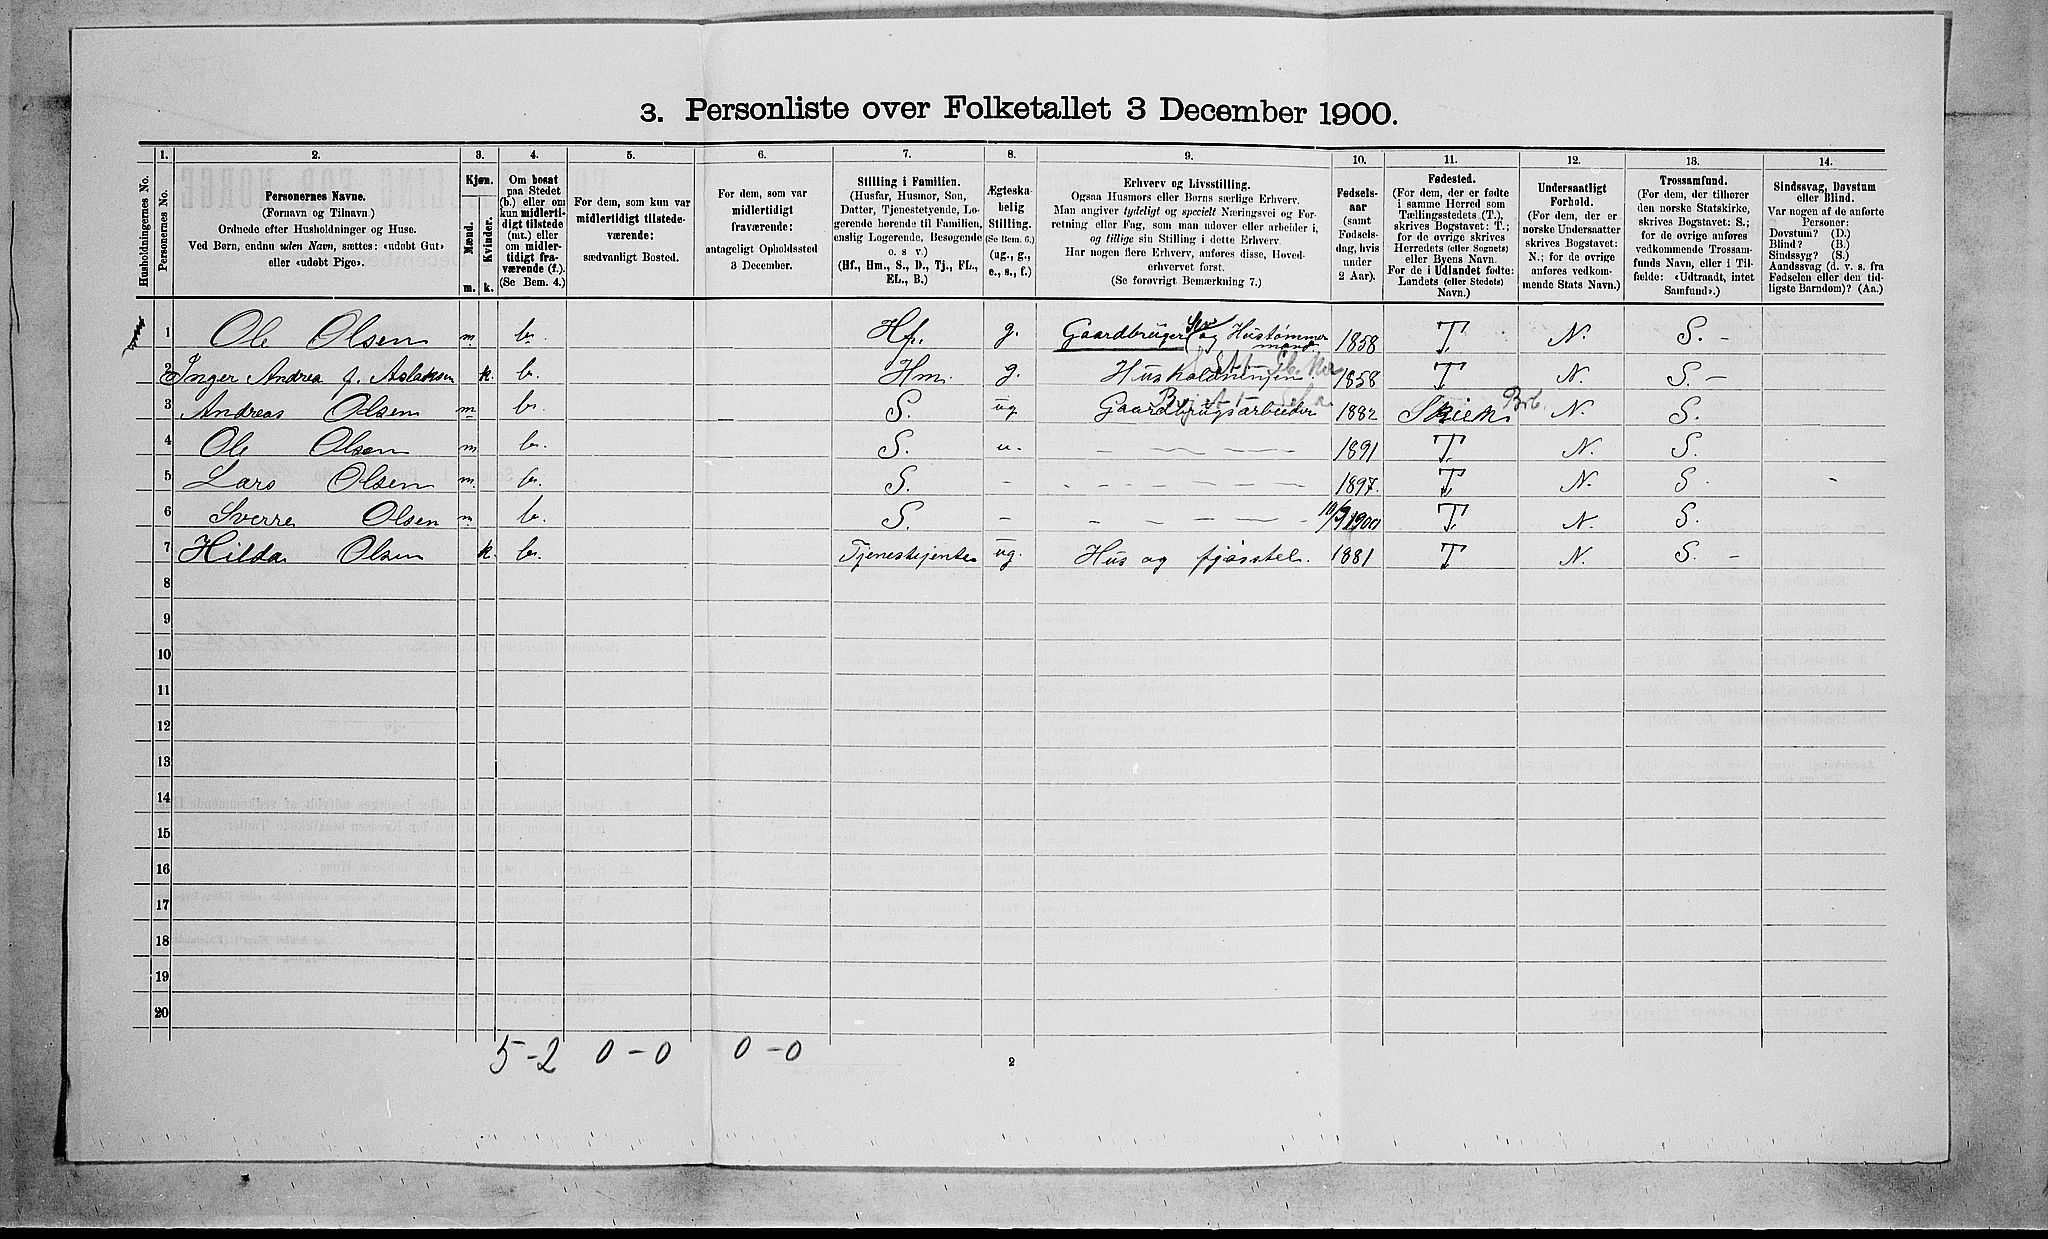 3. Personliste over Folketallet 3 December 1900.
1. 2. 3. 4. 5. 6. 7. 8. 9. 10. 11. 12. 13. 14.
Husholdningernes No.
Personernes No.
Personernes Navne.
(Fornavn og Tilnavn)
Ordnede efter Husholdninger og Huse.
Ved Børn, endnu uden Navn, sættes: «udøbt Gut»
eller «udøbt Pige».
Kjøn.
Mænd.
Kvinder.
m. k.
Om bosat
paa Stedet
(b.) eller om
kun midlerti-
digt tilstede
(mt.) eller
om midler-
tidigt fra-
værende (f.).
(Se Bem. 4.)
For dem, som kun var
midlertidigt tilstede-
værende:
sædvanligt Bosted.
For dem, som var
midlertidigt
fraværende:
antageligt Opholdssted
3 December.
Stilling i Familien.
(Husfar, Husmor, Søn,
Datter, Tjenestetyende, Lo-
gerende hørende til Familien,
enslig Logerende, Besøgende
o. s. v.)
(Hf., Hm., S., D., Tj., FL.,
EL., B.)
Ægteska-
belig
Stilling.
(Se Bem. 6.)
(ug., g.,
e., s., f.)
Erhverv og Livsstilling.
Ogsaa Husmors eller Børns særlige Erhverv.
Man angiver tydeligt og specielt Næringsvei og For-
retning eller Fag, som man udøver eller arbeider i,
og tillige sin Stilling i dette Erhverv.
Har nogen flere Erhverv, anføres disse, Hoved-
erhvervet først.
(Se forøvrigt Bemærkning 7.)
Fødsels-
aar
(samt
Fødsels-
dag, hvis
under
2 Aar).
Fødested.
(For dem, der er fødte
i samme Herred som
Tællingsstedets (T.),
skrives Bogstavet: T.;
for de øvrige skrives
Herredets (eller Sognets)
eller Byens Navn.
For de i Udlandet fødte:
Landets (eller Stedets)
Navn.)
Undersaatligt
Forhold.
(For dem, der er
norske Undersaatter
skrives Bogstavet:
N.; for de øvrige
anføres vedkom-
mende Stats Navn.)
Trossamfund.
(For dem, der tilhører
den norske Statskirke,
skrives Bogstavet: S.;
for de øvrige anføres
vedkommende Trossam-
funds Navn, eller i Til-
fælde: «Udtraadt, intet
Samfund».)
Sindssvag, Døvstum
eller Blind.
Var nogen af de anførte
Personer:
Døvstum? (D.)
Blind? (B.)
Sindssyg? (S.)
Aandssvag (d. v. s. fra
Fødselen eller den tid-
ligste Barndom)? (Aa.)
1 Ole Olsen m. b. Hf. g. Gaardbruger og Hustømmer mand. 1858 T. N. S. -
2 Inger Andrea f. Aslaksen k. b. Hm. g. Husholdningen. 1858 T N. S. -
3 Andreas Olsen m b. S. ug Gaardbrugsarbeider 1882 N. S.
4 Ole Olsen m b. S. u. - - - - 1891 T. N. S.
5 Lars Olsen m. b. S. - - - - - - 1897. T. N. S. -
6 Sverre Olsen m b. S. - - - - - - 10/9 1900 T. N. S.
7 Hilda Olsen k. b. Tjenestejente ug. Hus og fjøsstel. 1881 T N. S. -
8
9
10
11
12
13
14
15
16
17
18
19
20
5 - 2 0 - 0 0 - 0
2